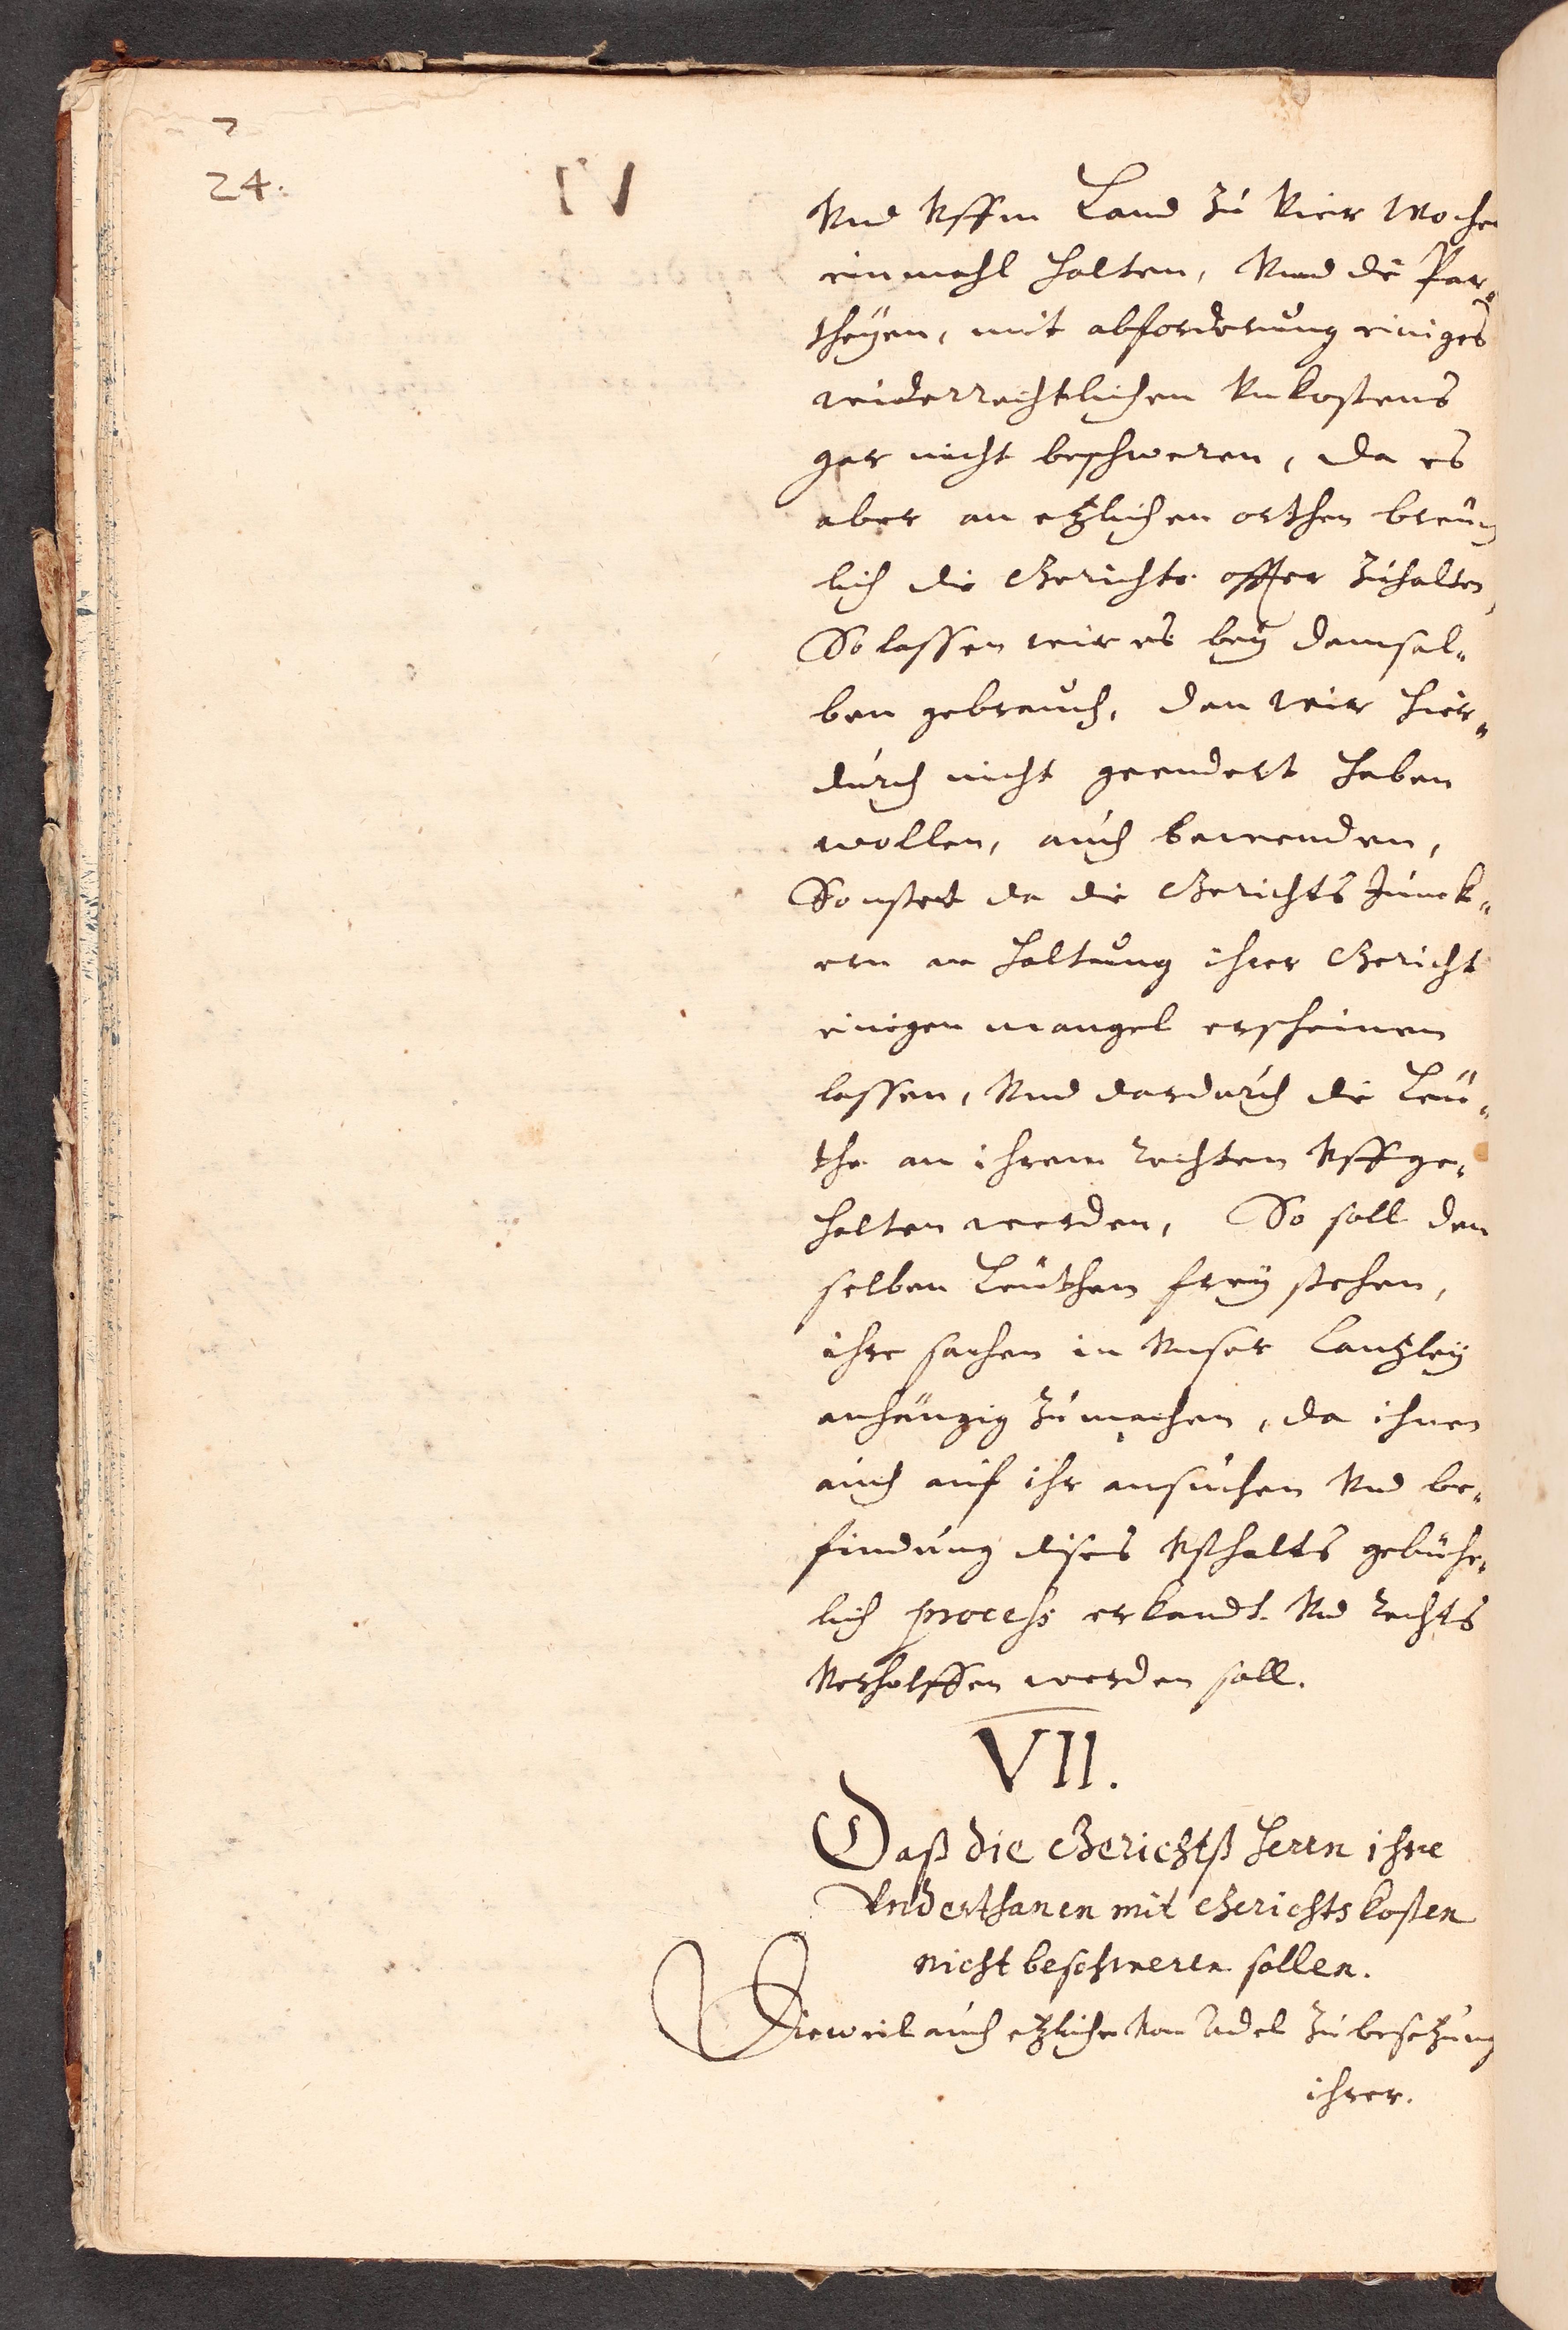 24.
IV
Vnd Vffm Land zu Vier Wochen
einmahl halten, Vnnd die Par„
theÿen, mit abforderung einiges
widerrechtlichen Vnkostens
gar nicht beschweren, da es
aber an etzlichen orthen breuch
lich die Gerichte offter zuhalten,
So lassen wir es beÿ demsel„
ben gebrauch, den wir hier„
durch nicht geendert haben
wollen, auch bewenden,
Sonsten da die Gerichts Junck„
ern an Haltung ihrer Gericht
einigen mangel erscheinen
lassen, Vnd dardurch die Leü„
the an ihrem rechten Vffge„
halten werden, So soll den
selben Leüthen freÿ stehen,
ihre sachen in Vnser Cantzleÿ
anhängig zu machen, da ihnen
auch auf ihr ansuchen Vnd be„
findung dises Vffhalts gebühr„
lich process erkandt Vnd rechts
Verholffen werden soll.
VII.
Daß die Gerichtß Herrn ihre
Vnderthanen mit Gerichts kosten
nicht beschweren sollen.
Dieweil auch etzliche Von Adel zu besetzung
ihrer.